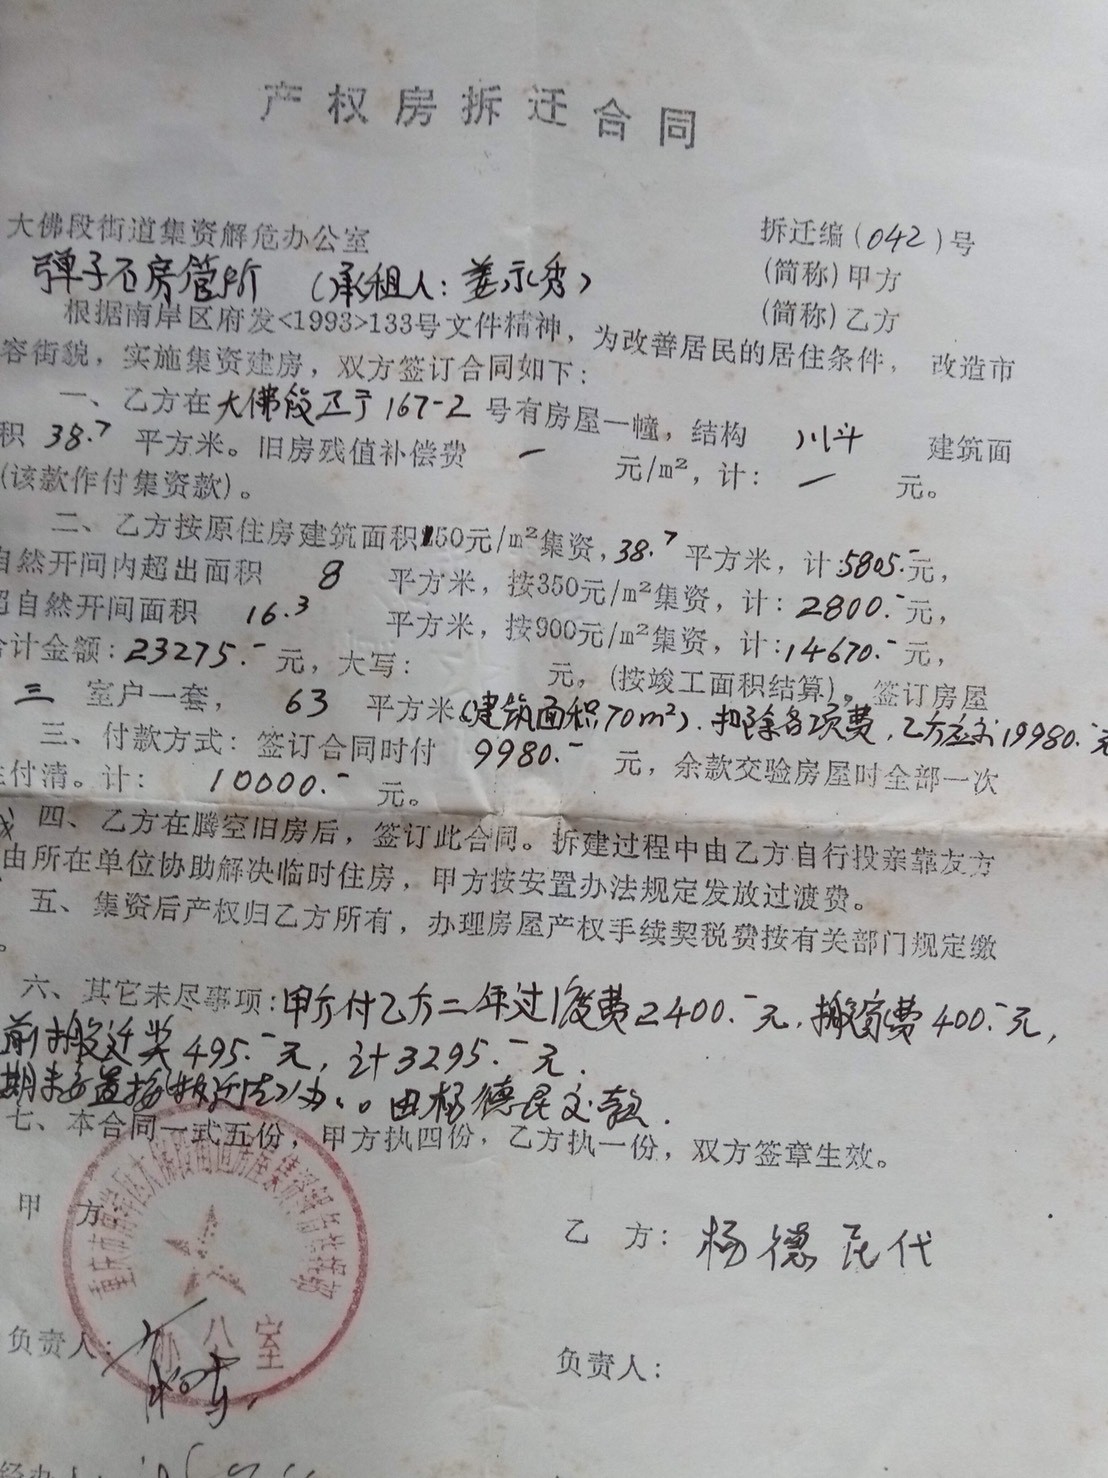 产权房拆迁合同
拆迁编(042)号
大佛段街道集资解危办公室 (简称)甲方
弹子石房管所 (承租人:姜永秀) (简称)乙方
根据南岸区府发<1993>133号文件精神,为改善居民的居住条件,改造市
容街貌,实施集资建房,双方签订合同如下:
一、乙方在大佛段正于167-2号有房屋一幢,结构 川斗 建筑面
积38.7平方米。旧房残值补偿费 一 元/m²,计: 一 元。
(该款作付集资款)。
二、乙方按原住房建筑面积150元/m²集资,38.7平方米,计:5805.-元,
自然开间内超出面积 8 平方米,按350元/m²集资,计:2800.-元,
超自然开间面积 16.3 平方米,按900元/m²集资,计:14670.-元,
合计金额:23275.-元,大写: 元,(按竣工面积结算)。签订房屋
三 室户一套, 63 平方米(建筑面积70m²).扣除各项费,乙方应交19980.-元
三、付款方式:签订合同时付 9980.- 元,余款交验房屋时全部一次
性付清。计: 10000.- 元。
四、乙方在腾空旧房后,签订此合同。拆建过程中由乙方自行投亲靠友方
由所在单位协助解决临时住房,甲方按安置办法规定发放过渡费。
五、集资后产权归乙方所有,办理房屋产权手续契税费按有关部门规定缴
。
六、其它未尽事项:甲方付乙方二年过渡费2400.-元.搬家费400.-元,
前搬迁奖495.-元,计3295.-元.
期未安置按拆迁法办.。由杨德民交款.
七、本合同一式五份,甲方执四份,乙方执一份,双方签章生效。
甲 方 乙 方: 杨德民代
办公室
负责人: 负责人:
经办人: